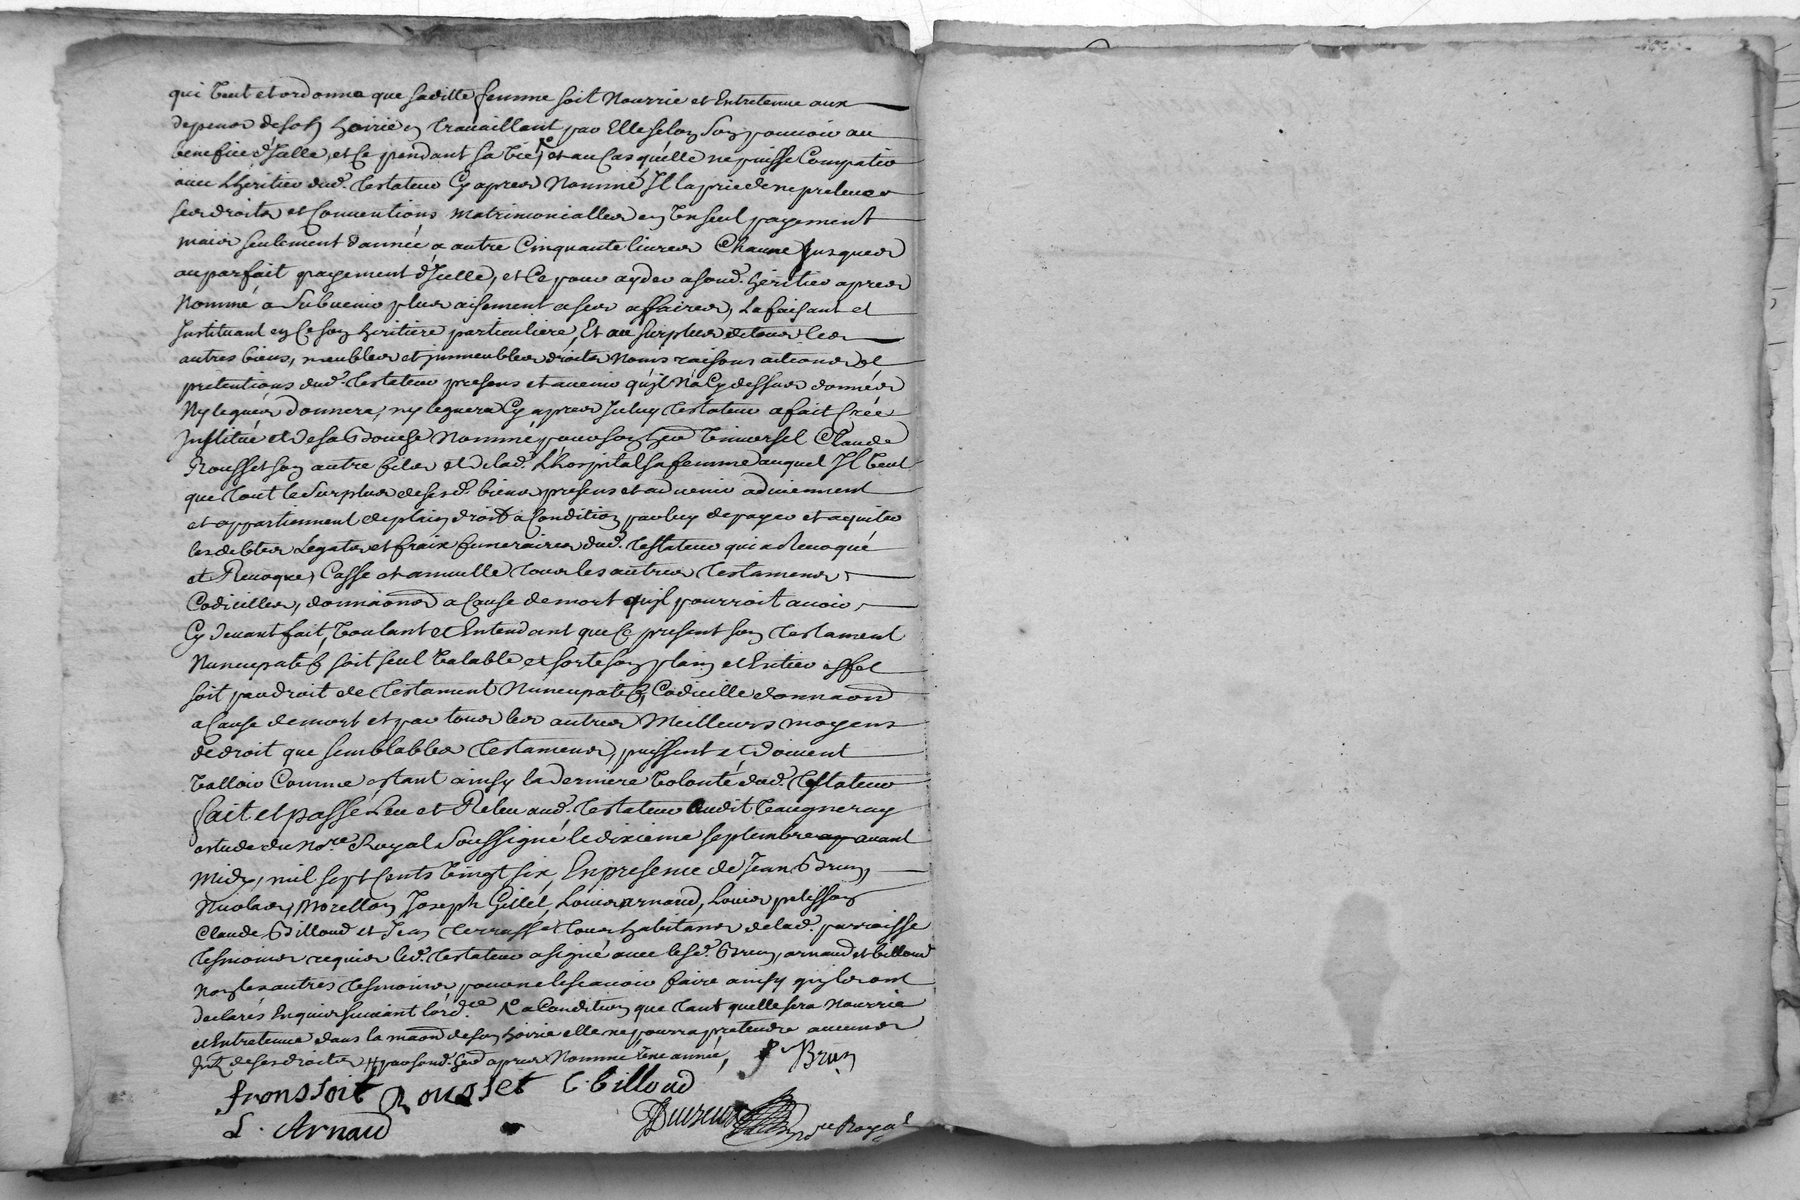 qui veut et ordonne que saditte femme soit Nourrie et Entretenue aux
depens de son hoirie en travaillant par Elle selon son pouvoir au
benefice d'Jcelle, et ce pendant sa vie, et au cas qu'elle ne puisse Compatir
avec L'heritier dud. testateur Cy apres Nommé Jl la prie de ne prelever
ses droits et Conventions matrimonialles en un seul payement
mais seulement d'année a autre Cinquante livres Chacune Jusques
au parfait payement d'Jcelle, et Ce pour ayder a sond. heritier apres
Nommé a subvenir plus aisement a ses affaires, La faisant et
Jnstituant en Ce son heritiere particuliere, Et au surplus de tous les
autres biens, meubles et jmmeubles droits Noms raisons actions et
pretentions dud. testateur presens et avenir qu'jl N'a Cy dessus donnés
Ny legués donnera, ny leguera Cy apres Jceluy testateur a fait Créé
Jnstitué et de sa Bouche Nommé pour son her universel Claude
Rousset son autre fils et de lad. Lhospital sa femme auquel Jl veut
que tout le surplus de ses d. biens presens et advenir adviennent
et appartiennent de plain droit a Condition par luy de payer et aquiter
les debtes Legats et fraix funeraires dud. testateur qui a Revoqué
et Revoque, Casse et annulle tous les autres testamens
Codicilles, donnaons a Cause de mort qu'jl pourroit avoir
Cy devant fait, voulant et Entendant que Ce present son testament
Nuncupatif soit seul valable et sorte son plain et Entier effet
soit par droit de testament Nuncupatif, Codicille donnaon
a Cause de mort et par tous les autres Meilleurs moyens
de droit que semblables testamens, puissent et doivent
valloir Comme estant ainsy la derniere volonté dud. testateur
fait et passé Leu et Releu aud. testateur audit vaugneray
estude du Nore Royal soussigné le dixieme septembre avant
Midy, mil sept cents vingt six, En presence de Jean Brun,
Nicolas Morellon, Joseph Gillet, Louis arnaud, Louis pelisson
Claude Billoud et Jean terrasse tous habitans de lad. parroisse
tesmoins requis led. testateur a signé avec lesd. Brun, arnaud et billoud
Non les autres tesmoins pour ne le scavoir faire ainsy qu'jls ont
declarés Enquis suivant l'ord.ce a Condition que tant quelle sera Nourrie
et Entretenue dans la maon de son hoirie elle ne pourra pretendre aucuns
de ses droits par sond. her apres Nommé année,
J Brun
fransoit Rousset C. billoud
L. Arnaud
re Royal